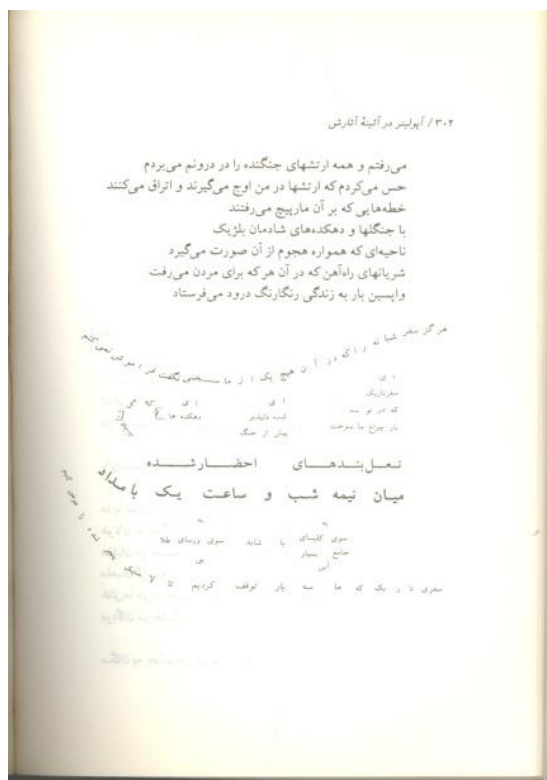 ۳۰۲ / آپولینر در آئینهٔ آثارش
می‌رفتم و همه ارتشهای جنگنده را در درونم می‌بردم
حس می‌کردم که ارتشها در من اوج می‌گیرند و اتراق می‌کنند
خطه‌هایی که بر آن مارپیچ می‌رفتند
با جنگلها و دهکده‌های شادمان بلژیک
ناحیه‌ای که همواره هجوم از آن صورت می‌گیرد
شریانهای راه‌آهن که در آن هر که برای مردن می‌رفت
واپسین بار به زندگی رنگارنگ درود می‌فرستاد
هرگز سفر شبانه را که در آن هیچ یک از ما سخنی نگفت فراموش نمی‌کنم
ای
سفر تاریک
که در تو سه
بار چراغ ما سوخت
ای
شب دلپذیر
پیش از جنگ
ای
دهکده ها
که می
نعل‌بندهای احضار شده
میان نیمه شب و ساعت یک بامداد
به
سوی کلیسای
جامع بسیار
آبی
یا شاید
به
سوی ورسای طلا
یی
سفری تاریک که ما سه بار توقف کردیم تا لاستیک